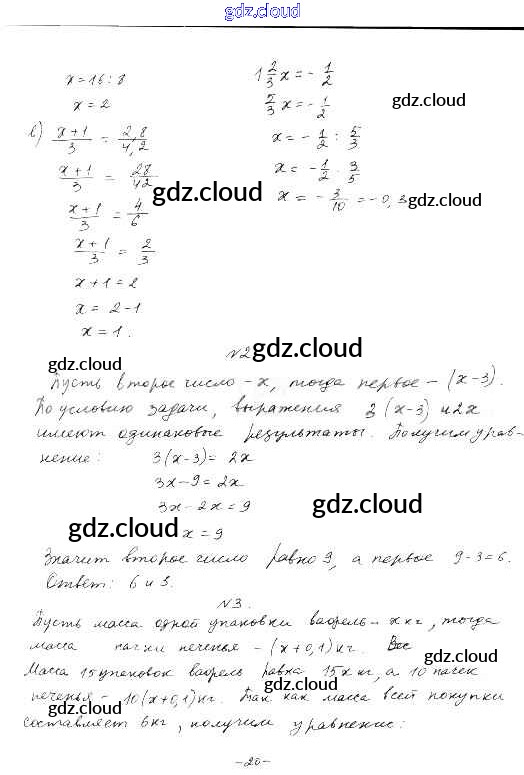 gdz.cloud
x = 16 : 8
x = 2
в) (x+1)/3 = 2,8/4,2
(x+1)/3 = 28/42
(x+1)/3 = 4/6
(x+1)/3 = 2/3
x + 1 = 2
x = 2 - 1
x = 1.
1 2/3 x = - 1/2
5/3 x = - 1/2
gdz.cloud
x = - 1/2 : 5/3
x = - 1/2 · 3/5
gdz.cloud
x = - 3/10 = - 0,3
gdz.cloud
N2
gdz.cloud
gdz.cloud
Пусть второе число - x, тогда первое - (x-3).
По условию задачи, выражения 3(x-3) и 2x
gdz.cloud
имеют одинаковые результаты. Получим урав-
нение: 3(x-3) = 2x
3x - 9 = 2x
3x - 2x = 9
gdz.cloud
gdz.cloud
x = 9
Значит второе число равно 9, а первое 9-3=6.
Ответ: 6 и 3.
gdz.cloud
N3.
Пусть масса одной упаковки вафель - x кг, тогда
масса пачки печенья - (x+0,1) кг. Вес
gdz.cloud
Масса 15 упаковок вафель равна 15x кг, а 10 пачек
gdz.cloud
печенья - 10(x+0,1) кг. Так как масса всей покупки
gdz.cloud
составляет 6 кг, получим уравнение:
gdz.cloud
-20-